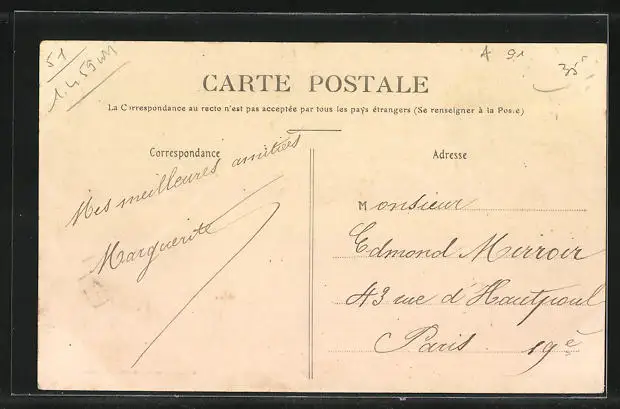 51
A 91
35
CARTE POSTALE
La Correspondance au recto n'est pas acceptée par tous les pays étrangers (Se renseigner à la Poste)
Correspondance
Mes meilleures amitiés
Marguerite
Adresse
Monsieur
Edmond Mirroir
43 rue d'Hautpoul
Paris 19e